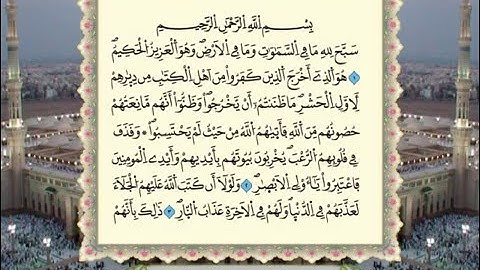 بِسْمِ اللَّهِ الرَّحْمَٰنِ الرَّحِيمِ
سَبَّحَ لِلَّهِ مَا فِي السَّمَٰوَٰتِ وَمَا فِي الْأَرْضِ وَهُوَ الْعَزِيزُ الْحَكِيمُ
١ هُوَ الَّذِي أَخْرَجَ الَّذِينَ كَفَرُوا مِنْ أَهْلِ الْكِتَٰبِ مِن دِيَٰرِهِمْ
لِأَوَّلِ الْحَشْرِ مَا ظَنَنتُمْ أَن يَخْرُجُوا وَظَنُّوا أَنَّهُم مَّانِعَتُهُمْ
حُصُونُهُم مِّنَ اللَّهِ فَأَتَىٰهُمُ اللَّهُ مِنْ حَيْثُ لَمْ يَحْتَسِبُوا وَقَذَفَ
فِي قُلُوبِهِمُ الرُّعْبَ يُخْرِبُونَ بُيُوتَهُم بِأَيْدِيهِمْ وَأَيْدِي الْمُومِنِينَ
فَاعْتَبِرُوا يَٰأُولِي الْأَبْصَٰرِ ٢ وَلَوْلَا أَن كَتَبَ اللَّهُ عَلَيْهِمُ الْجَلَاءَ
لَعَذَّبَهُمْ فِي الدُّنْيَا وَلَهُمْ فِي الْأَخِرَةِ عَذَابُ النَّارِ ٣ ذَٰلِكَ بِأَنَّهُمْ